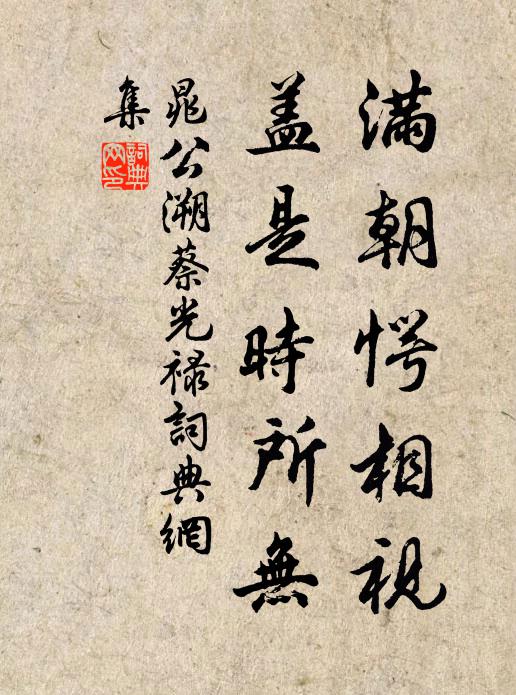 滿朝愕相視
盖是時所無
晁公溯蔡光祿詞典網
集
詞典
网印